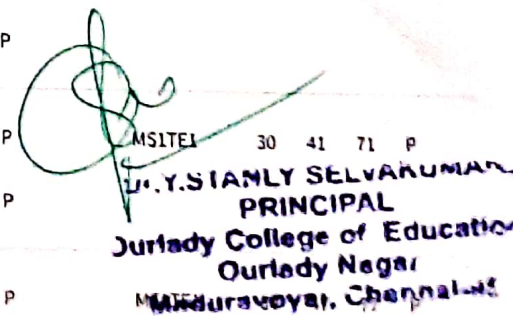 P
P MS1TEI 30 41 71 P
Dr.Y.STANLY SELVAKUMAR
P PRINCIPAL
Ourlady College of Education
Ourlady Nagar
P Maduravoyal, Chennai